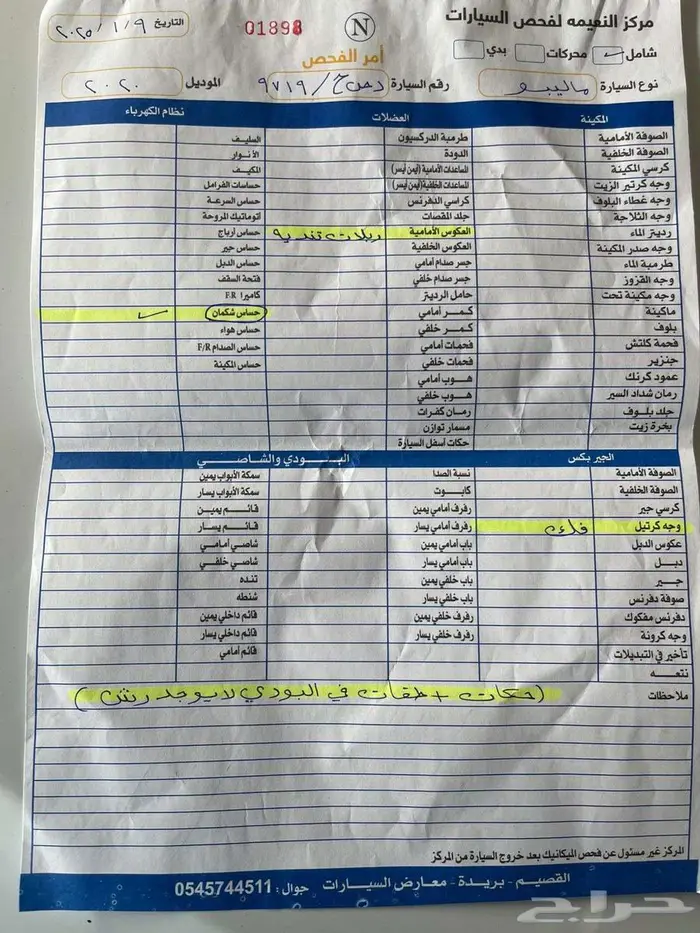 مركز النعيمه لفحص السيارات
N
01898
التاريخ ٢٠٢٥/١/٩
شامل محركات بدي
أمر الفحص
نوع السيارة ماليبو رقم السيارة ٩٧١٩ الموديل ٢٠٢٠
المكينة العضلات نظام الكهرباء
الصوفة الأمامية طرمبة الدركسيون السليف
الصوفة الخلفية الدودة الأنوار
كرسي المكينة المساعدات الأمامية (أيمن أيسر) المكيف
وجه كرتير الزيت المساعدات الخلفية (أيمن أيسر) حساسات الفرامل
وجه غطاء البلوف كراسي الدفرنس حساس السرعة
وجه الثلاجة جلد المقصات أتوماتيك المروحة
رديتر الماء العكوس الأمامية ربلات تندية حساس أرباج
وجه صدر المكينة العكوس الخلفية حساس جير
طرمبة الماء جسر صدام أمامي حساس الدبل
وجه القزوز جسر صدام خلفي فتحة السقف
وجه مكينة تحت حامل الرديتر كاميرا F.R
ماكينة كمر أمامي حساس شكمان
بلوف كمر خلفي حساس هواء
فحمة كلتش فحمات أمامي حساس الصدام F/R
جنزير فحمات خلفي حساس المكينة
عمود كرنك هوب أمامي
رمان شداد السير هوب خلفي
جلد بلوف رمان كفرات
بخرة زيت مسمار توازن
حكات أسفل السيارة
الجير بكس البودي والشاصي
الصوفة الأمامية نسبة الصدا سمكة الأبواب يمين
الصوفة الخلفية كابوت سمكة الأبواب يسار
كرسي جير رفرف أمامي يمين قائم يمين
وجه كرتيل فك رفرف أمامي يسار قائم يسار
عكوس الدبل باب أمامي يمين شاصي أمامي
دبل باب أمامي يسار شاصي خلفي
جير باب خلفي يمين تنده
صوفة دفرنس باب خلفي يسار شنطه
دفرنس مفكوك رفرف خلفي يمين قائم داخلي يمين
وجه كرونة رفرف خلفي يسار قائم داخلي يسار
تأخير في التبديلات قائم أمامي
نتعه
ملاحظات (حكات + طقات في البودي لا يوجد رش)
المركز غير مسئول عن فحص الميكانيك بعد خروج السيارة من المركز
القصيم - بريدة - معارض السيارات جوال : 0545744511
حراج